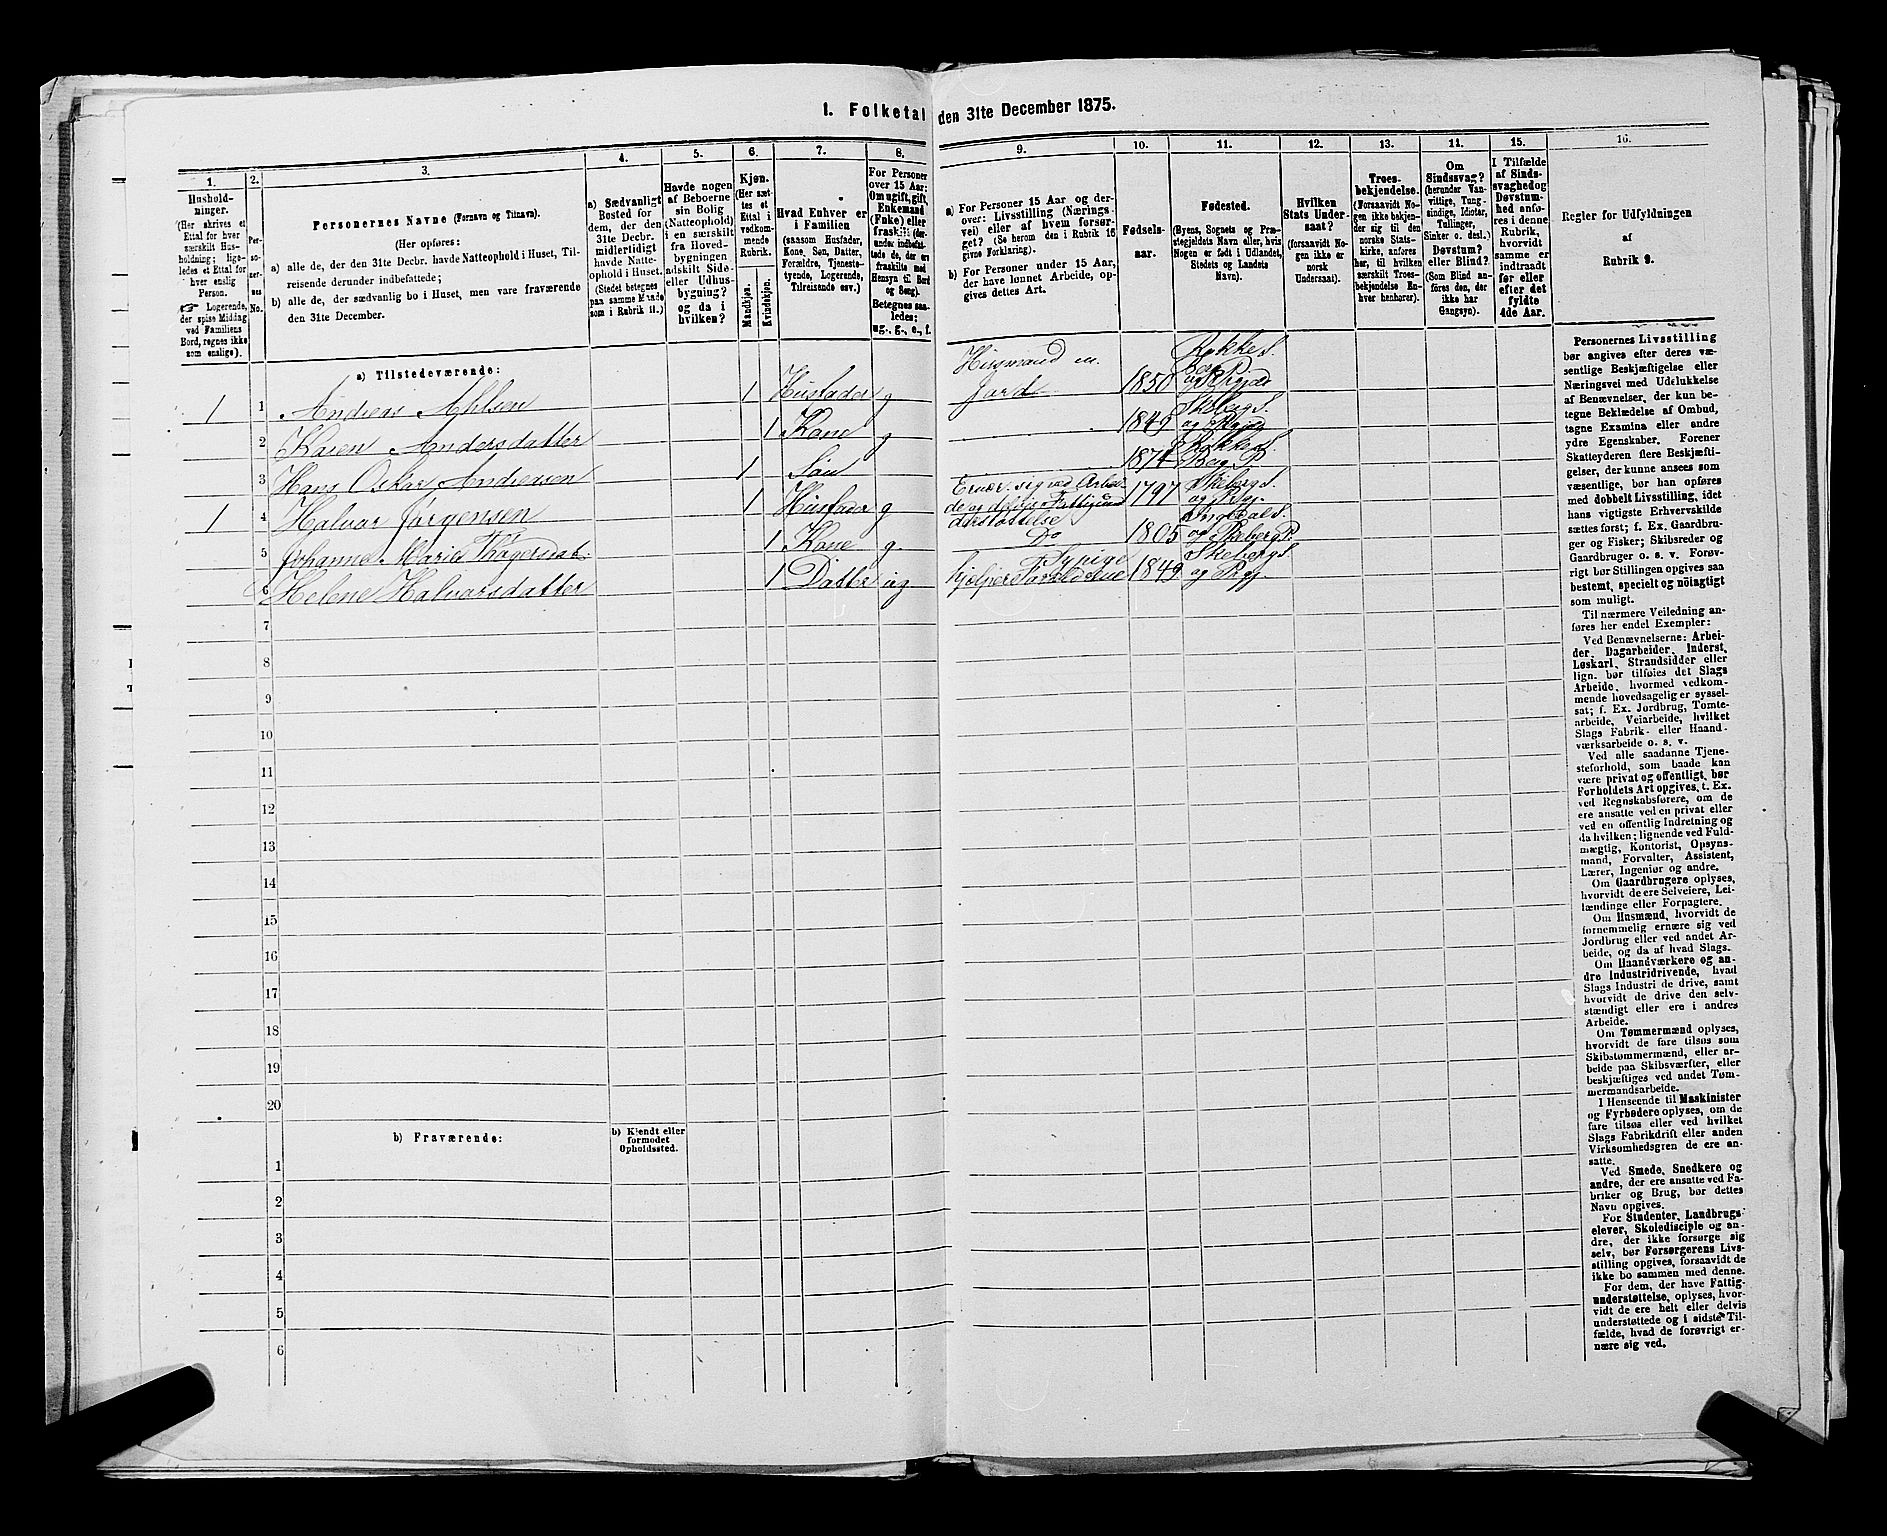 1. Folketal den 31te December 1875.
1.
Hushold-
ninger.
(Her skrives et
Ettal for hver
særskilt Hus-
holdning; lige-
ledes et Ettal for
hver enslig
Person.
Logerende,
der spise Middag
ved Familiens
Bord, regnes ikke
som enslige).
2.
Per-
so-
ner-
nes
No.
3.
Personernes Navne (Fornavn og Tilnavn).
(Her opføres:
a) alle de, der den 31te Decbr. havde Natteophold i Huset, Til-
reisende derunder indbefattede;
b) alle de, der sædvanlig bo i Huset, men vare fraværende
den 31te December.
4.
a) Sædvanligt
Bosted for
dem, der den
31te Decbr.
midlertidigt
havde Natte-
ophold i Huset.
(Stedet betegnes
paa samme Maade
som i Rubrik 11.)
5.
Havde nogen
af Beboerne
sin Bolig
(Natteophold)
i en særskilt
fra Hoved-
bygningen
adskilt Side-
eller Udhus-
bygning?
og da i
hvilken?
6.
Kjøn.
(Her sæt-
tes et
Ettal i
vedkom-
mende
Rubrik.
Mandkjøn.
Kvindekjøn.
7.
Hvad Enhver er
i Familien
(saasom Husfader,
Kone, Søn, Datter,
Forældre, Tjeneste-
tyende, Logerende,
Tilreisende osv.)
8.
For Personer
over 15 Aar:
Om ugift, gift,
Enkemand
(Enke) eller
fraskilt (der-
under indbefat-
tede de, der ere
fraskilte med
Hensyn til Bord
og Seng).
Betegnes saa-
ledes:
ug., g., e., f.
9.
a) For Personer 15 Aar og der-
over: Livsstilling (Nærings-
vei) eller af hvem forsør-
get? (Se herom den i Rubrik 16
givne Forklaring).
b) For Personer under 15 Aar,
der have lønnet Arbeide, op-
gives dettes Art.
10.
Fødsels-
aar.
11.
Fødested.
(Byens, Sognets og Præ-
stegjeldets Navn eller, hvis
Nogen er født i Udlandet,
Stedets og Landets
Navn).
12.
Hvilken
Stats Under-
saat?
(forsaavidt No-
gen ikke er
norsk
Undersaat).
13.
Troes-
bekjendelse.
(Forsaavidt No-
gen ikke bekjen-
der sig til den
norske Stats-
kirke, anføres
her, til hvilken
særskilt Troes-
bekjendelse En-
hver henhører).
14.
Om
Sindssvag?
(herunder Van-
vittige, Tung-
sindige, Idioter,
Tullinger,
Sinker o. desl.)
Døvstum?
eller Blind?
(Som Blind an-
føres den, der
ikke har
Gangsyn).
15.
I Tilfælde
af Sinds-
svaghed og
Døvstum-
hed anfø-
res i denne
Rubrik,
hvorvidt
samme er
indtraadt
før eller
efter det
fyldte
4de Aar.
16.
Regler for Udfyldningen
af
Rubrik 9.
a) Tilstedeværende:
1 1 Andreas Ahlsen 1 Husfader g Husmand m. Jord 1850 Rokke S. Berg P.
2 Karen Andersdatter 1 Kone g 1849 Skeberg S. og Prgj.
3 Hans Oskar Andresen 1 Søn 1874 Rokke S. Berg P.
1 4 Halvar Jørgensen 1 Husfader g Ernær. sig ved Arbei-
de og delvis Fattigun-
derstøttelse 1797 Skeberg S. og Prgj.
5 Johanne Marie 1 Kone g. Do 1805 og Skeberg P.
6 Helene Halvarsdatter 1 Datter ug hjelper Forældrene 1849 Skeberg S. og Prgj.
7
8
9
10
11
12
13
14
15
16
17
18
19
20
b) Fraværende:
b) Kjendt eller
formodet
Opholdssted.
1
2
3
4
5
6
Personernes Livsstilling
bør angives efter deres væ-
sentlige Beskjæftigelse eller
Næringsvei med Udelukkelse
af Benævnelser, der kun be-
tegne Beklædelse af Ombud,
tagne Examina eller andre
ydre Egenskaber. Forener
Skatteyderen flere Beskjæfti-
gelser, der kunne ansees som
væsentlige, bør han opføres
med dobbelt Livsstilling, idet
hans vigtigste Erhvervskilde
sættes først; f. Ex. Gaardbru-
ger og Fisker; Skibsreder og
Gaardbruger o. s. v. Forøv-
rigt bør Stillingen opgives saa
bestemt, specielt og nöiagtigt
som muligt.
Til nærmere Veiledning an-
føres her endel Exempler:
Ved Benævnelserne: Arbei-
der, Dagarbeider, Inderst,
Løskarl, Strandsidder eller
lign. bør tilføies det Slags
Arbeide, hvormed vedkom-
mende hovedsagelig er syssel-
sat; f. Ex. Jordbrug, Tomte-
arbeide, Veiarbeide, hvilket
Slags Fabrik- eller Haand-
værksarbeide o. s. v.
Ved alle saadanne Tjene-
steforhold, som baade kan
være privat og offentligt, bør
Forholdets Art opgives, t. Ex.
ved Regnskabsførere, om de
ere ansatte ved en privat eller
ved en offentlig Indretning og
da hvilken; lignende ved Fuld-
mægtig, Kontorist, Opsyns-
mand, Forvalter, Assistent,
Lærer, Ingeniør og andre.
Om Gaardbrugere oplyses,
hvorvidt de ere Selveiere, Lei-
lændinge eller Forpagtere.
Om Husmænd, hvorvidt de
fornemmelig ernære sig ved
Jordbrug eller ved andet Ar-
beide, og da af hvad Slags.
Om Haandværkere og an-
dre Industridrivende, hvad
Slags Industri de drive, samt
hvorvidt de drive den selv-
stændigt eller ere i andres
Arbeide.
Om Tømmermænd oplyses,
hvorvidt de fare tilsøs som
Skibstømmermænd, eller ar-
beide paa Skibsværfter, eller
beskjæftiges ved andet Tøm-
mermandsarbeide.
I Henseende til Maskinister
og Fyrbødere oplyses, om de
fare tilsøs eller ved hvilket
Slags Fabrikdrift eller anden
Virksomhedsgren de ere an-
satte.
Ved Smede, Snedkere og
andre, der ere ansatte ved Fa-
briker og Brug, bør dettes
Navn opgives.
For Studenter, Landbrugs-
elever, Skoledisciple og an-
dre, der ikke forsørge sig
selv, bør Forsørgerens Livs-
stilling opgives, forsaavidt de
ikke bo sammen med denne.
For dem, der have Fattig-
understøttelse, oplyses, hvor-
vidt de ere helt eller delvis
understøttede og i sidste Til-
fælde, hvad de forøvrigt er-
nære sig ved.